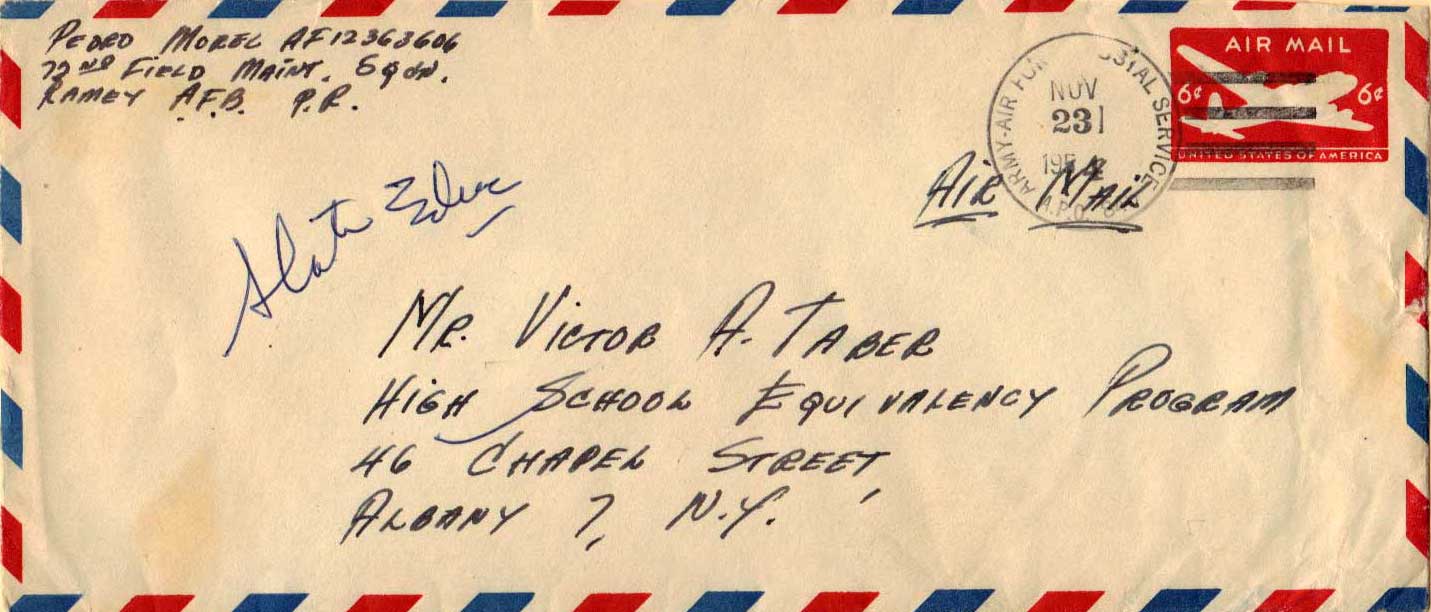 PEDRO MOREL AF12363606
72ND FIELD MAINT. SQDN.
RAMEY A.F.B. P.R.
AIR MAIL
6¢ 6¢
UNITED STATES OF AMERICA
ARMY-AIR POSTAL SERVICE
NOV
231
195
A.P.O.
AIR MAIL
State Educ
MR. VICTOR A. TABER
HIGH SCHOOL EQUIVALENCY PROGRAM
46 CHAPEL STREET,
ALBANY 7, N.Y.